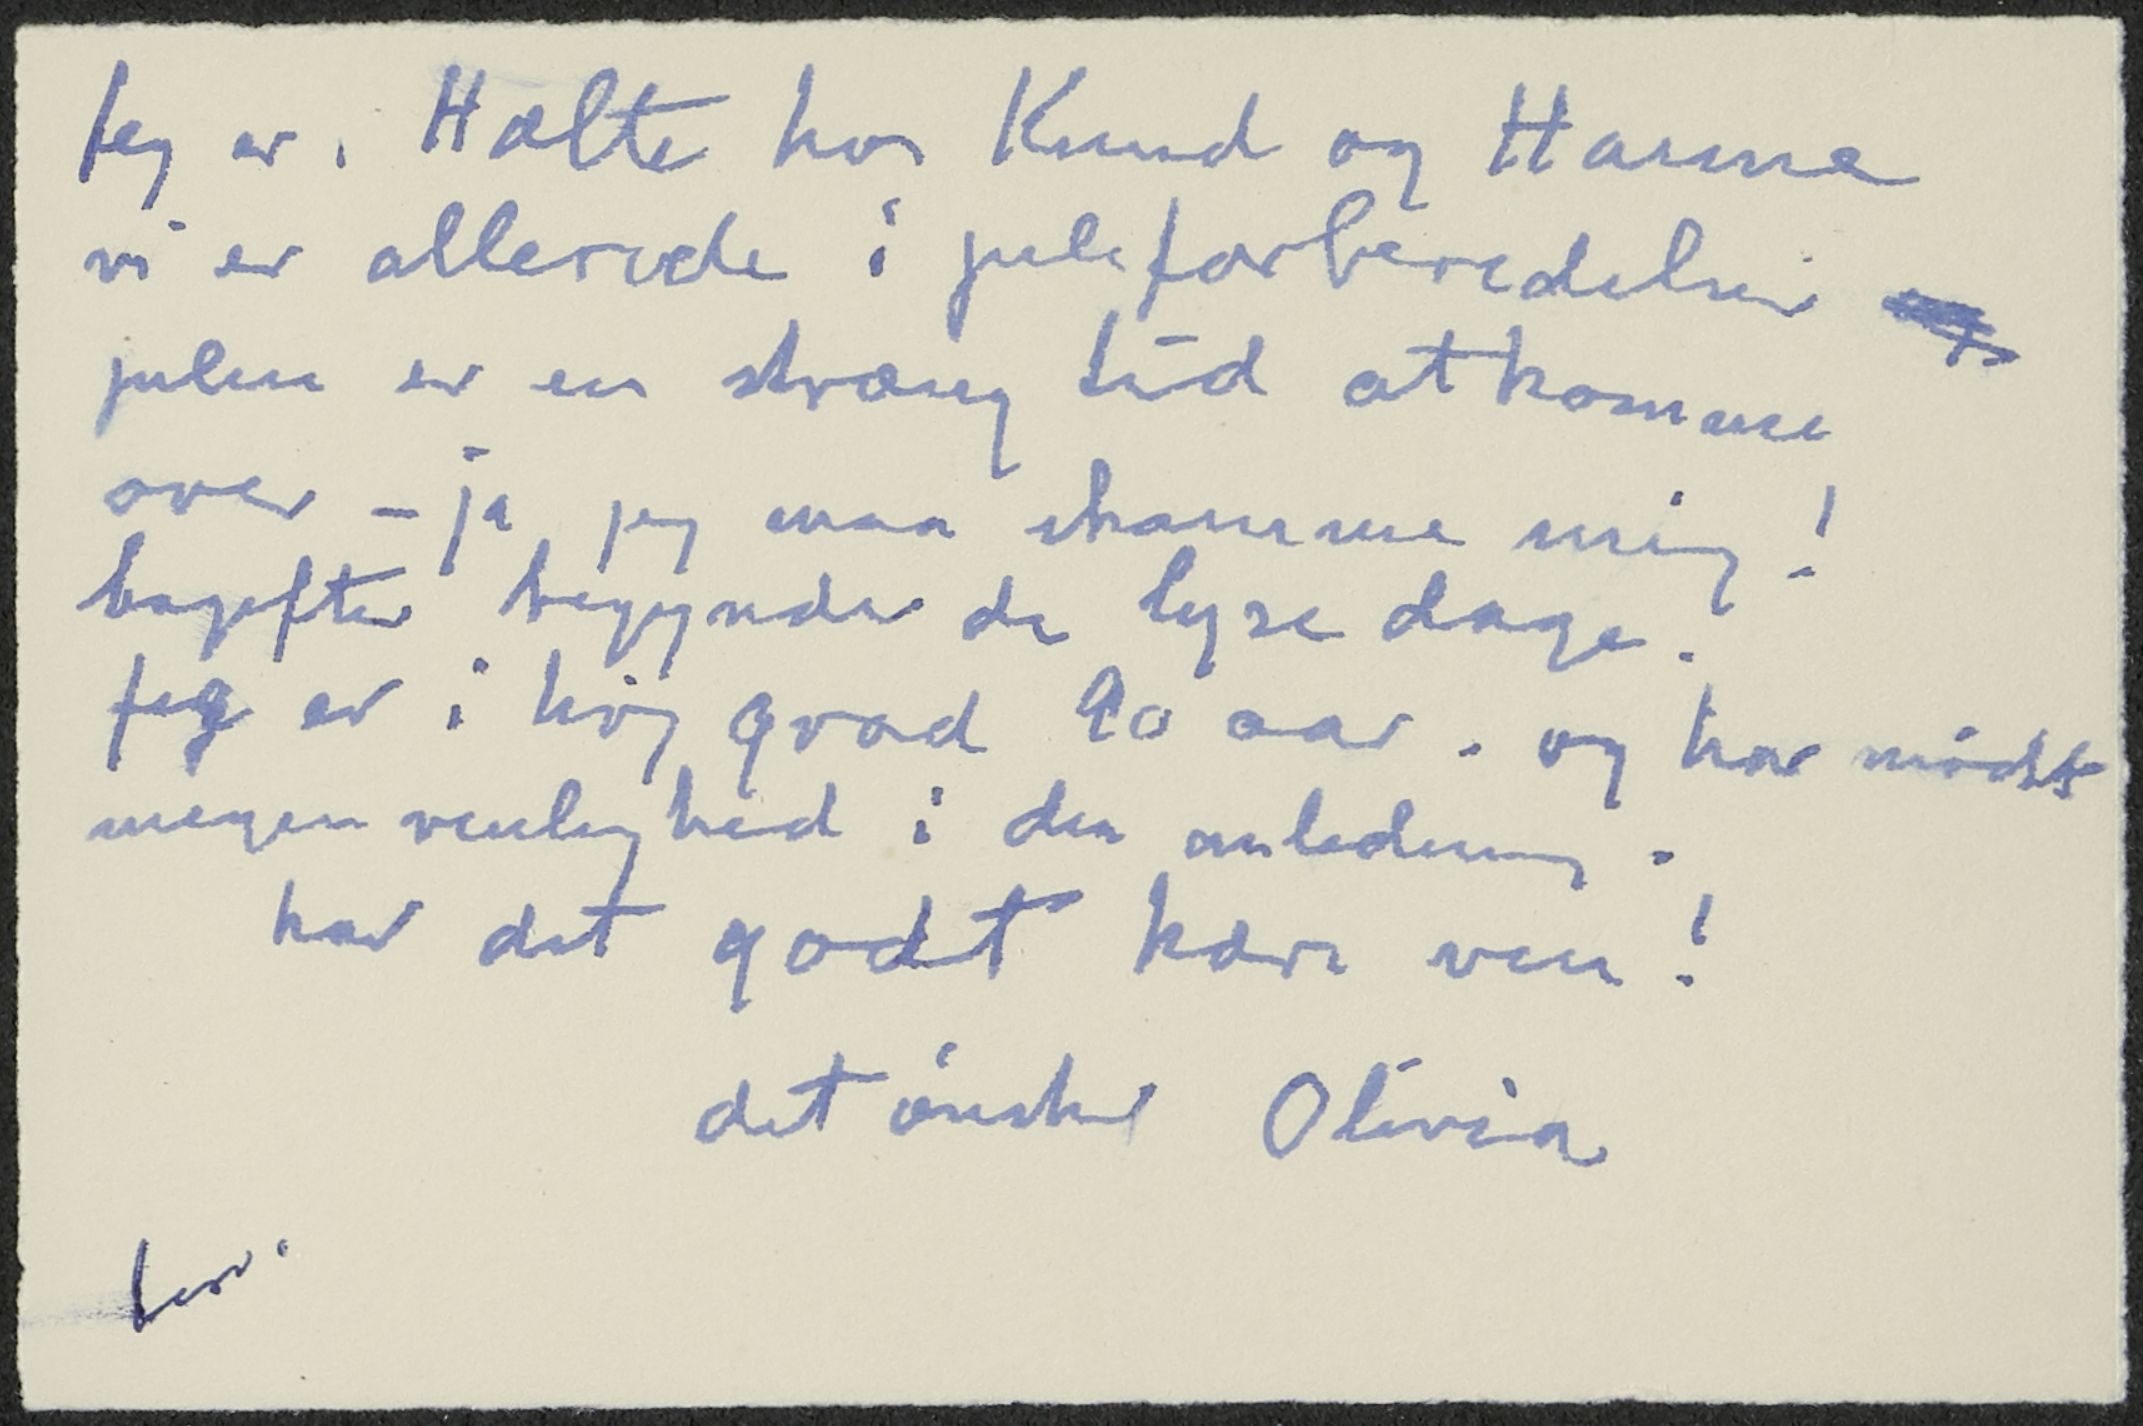 Jeg er i Holte hos Knud og Hanne
vi er allerede i juleforberedelser
julen er en stræng tid at komme
over – ja jeg maa skamme mig!
bagefter begynder de lyse dage.
Jeg er i höj grad 90 aar. og har mödt
megen venlighed i den anledning.
hav det godt kære ven!
det önsker Olivia